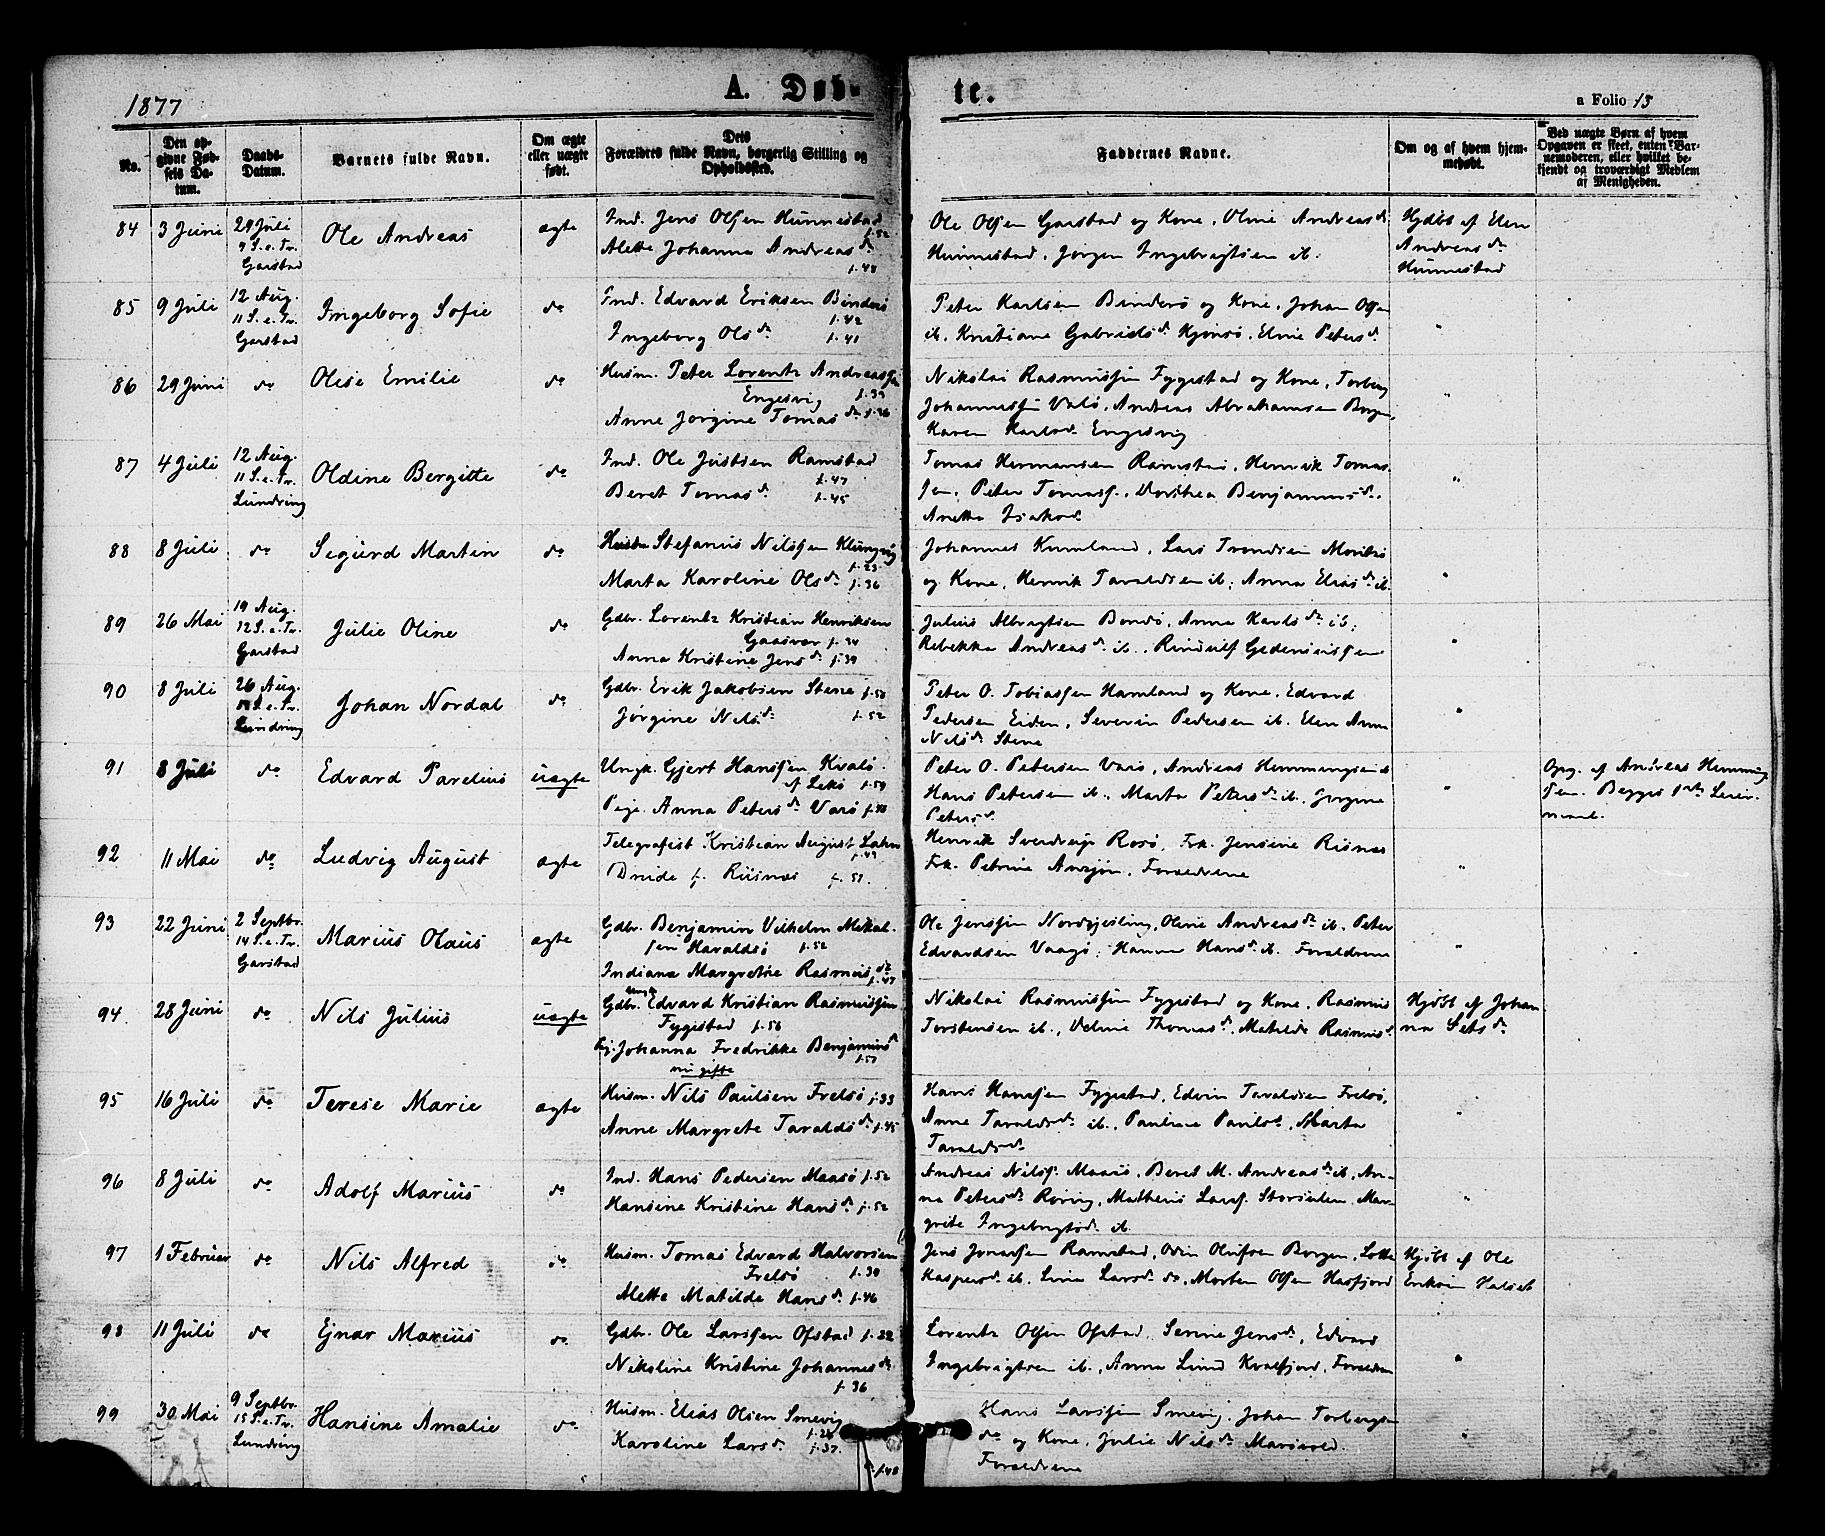 1877
A. Døb-
te.
a Folio 13
No.
Den op-
givne Fød-
sels Da-
tum.
Daabs-
Datum.
Barnets fulde Navn.
Om ægte
eller uægte
født.
Dets
Forældres fulde Navn, borgerlig Stilling og
Opholdssted.
Faddernes Navne.
Om og af hvem hjem-
medøbt.
Ved uægte Børn af hvem
Opgaven er skeet, enten Bar-
nemoderen, eller hvilket be-
kjendt og troværdigt Medlem
af Menigheden.
84 3 Juni 29 Juli
9 S. e. Tr.
Garstad
Ole Andreas
ægte
Ind. Jens Olsen Hunnestad
f. 52
Alette Johanna Andreasd.
f. 48
Ole Olsen Garstad og Kone, Andreasd.
Hunnestad, Jørgen Ingebrigtsen ib.
Hjdbt af Elen
Andreasd.
Hunnestad
85 9 Juli 12 Aug.
11 S. e. Tr.
Garstad
Ingeborg Sofie
do
Ind. Edvard Eriksen Binderö
f. 42
Ingeborg Olsd. f. 41
Peter Karlsen Binderö og Kone, Johan Olsen
ib. Kristiane Gabrielsd. Petersd.
"
86 29 Juni do
Olise Emilie
do
Husm. Peter Lorentz Andreassen
Engesvig f. 39
Anne Jørgine Tomasd. f. 36
Nikolai Rasmussen Fyggestad og Kone, Torberg
Johannessen Valö, Andreas Abrahamsen Borgen,
Karen Karlsd. Engesvig
"
87 4 Juli 12 Aug.
11 S. e. Tr.
Lundring
Oldine Bergitte
do
Ind. Ole Justsen Ramstad
f. 47
Beret Tomasd. f. 45
Tomas Hermansen Ramstad, Henrik Tomas-
sen, Peter Tomass., Dorthea Benjaminsd.
Anette
"
88 8 Juli do
Sigurd Martin
do
Stefanus Nilssen Klungvig
f. 23
Marta Karoline Olsd. f. 36
Johannes Kumland, Lars Trondsen
og Kone, Henrik Taraldsen ib., Anna Eliasd. ib.
"
89 26 Mai 19 Aug.
12 S. e. Tr.
Garstad
Julie Oline
do
Gdbr. Lorentz Kristian Henriksen
Gaasvær f. 34
Anna Kristine Jensd. f. 39
Julius Albregtsen Bondö, Anna Karlsd. ib.,
Rebekka Andreasd. ib., Gedeonssen
"
90 8 Juli 26 Aug.
S. e. Tr.
Lundring
Johan Nordal
do
Gdbr. Erik Jakobsen Stene f. 50
Jørgine Nilsd. f. 52
Peter O. Tobiassen Hamland og Kone, Edvard
Pedersen Eiden, Severin Pedersen ib. Elen Anna
Nilsd. Stene
"
91 8 Juli do
Edvard Parelius
uægte
Ungk. Gjert Hanssen Kvalö
af Lekö f. 59
Pige Anna Petersd. Varö f. 48
Peter O. Petersen Varö, Andreas Hemmingsen ib
Hans Petersen ib., Marta Petersd. ib., Jørgine
Petersd.
"
Opg. af Andreas Hemming
sen. Begges 1ste Leier-
maal.
92 11 Mai do
Ludvig August
ægte
Telegrafist Kristian August Lahn
f. 49
Drude f. Riisnæs f. 51.
Henrik Svendrup Rosö, Frk. Jensine Risnæs
Frk. Petrine Forældrene
"
93 22 Juni 2 Septbr.
14 S. e. Tr.
Garstad
Marius Olaus
ægte
Gdbr. Benjamin Vilhelm Mikal-
sen Haraldsö f. 52
Indiana Margrethe Rasmusd.
f. 47
Ole Jenssen Oline Andreasd. ib. Peter
Edvardsen Vaagö, Hanna Hansd. ib. Forældrene
"
94. 28 Juni do
Nils Julius
uægte
Gdbr. Edvard Kristian Rasmussen
Fyggestad f. 56
Pig. Johanna Fredrikke Benjaminsd.
f. 57
nu gifte
Nikolai Rasmussen Fyggestad og Kone, Rasmus
Torstensen ib., Thomasd., Matilde Rasmusd.
Hjdbt af Johan
na
95 16 Juli do
Terese Marie
ægte
Husm. Nils Paulsen Frelsö f. 33
Anne Margrete Taraldsd. f. 45
Hans Hanssen Fyggestad, Edvin Taraldsen Frelsö,
Anne Taraldsd. ib., Pauline Paulsd., Marta
Taraldsd.
"
96 8 Juli do
Adolf Marius
do
Ind. Hans Pedersen Maasö f. 52
Hansine Kristine Hansd. f. 52
Andreas Nilss. Maasö, Beret M. Andreasd. ib., An-
na Petersd. Röring, Matheus Larss. Storsalen, Mar-
grete Ingebrigtsd. ib.
"
97 1 Februar do
Nils Alfred
do
Husm. Tomas Edvard Halvorsen
Frelsö f. 39
Alette Matilde Hansd. f. 46
Jens Jonassen Ramstad, Odin Olufsen Borgen, Lotte
Kaspersd. ib. Line Larsd. do, Morten Olsen Hasfjord
Hjdbt af Ole
Eriksen Halset
98 11 Juli do
Ejnar Marius
do
Gdbr. Ole Larssen Ofstad f. 32
Nikoline Kristine Johannesd.
f. 36
Lorentz Olsen Ofstad, Serine Jensd., Edvard
Ingebrigtsen ib., Anna Lund Kvalfjord, Forældrene
"
99 30 Mai 9 Septbr.
15 S. e. Tr.
Lundring
Hansine Amalie
do
Husm. Elias Olsen Smevig
f. 28
Karoline Larsd. f. 37.
f. 40
Hans Larssen Smevig, Johan Torbergs-
og Kone, Julie Nilsd.
Forældrene
"